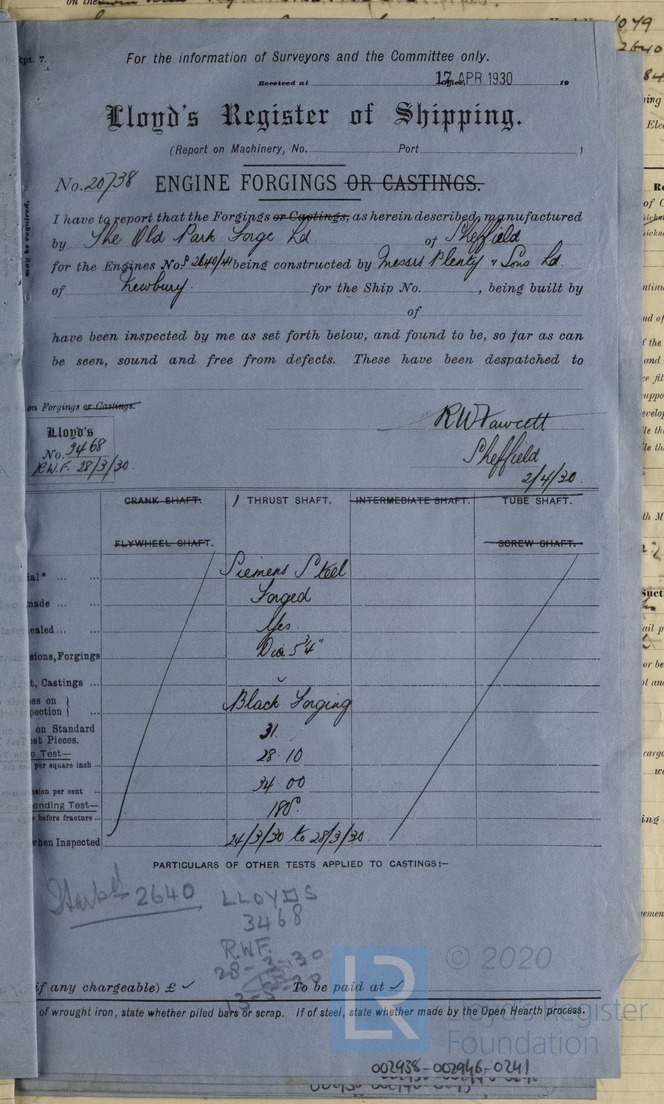 Rpt. 7.
For the information of Surveyors and the Committee only.
Received at 17 APR 1930 19
Lloyd's Register of Shipping.
(Report on Machinery, No. Port )
No. 20738 ENGINE FORGINGS OR CASTINGS.
I have to report that the Forgings or Castings, as herein described, manufactured
by The Old Park Forge Ld. of Sheffield
for the Engines No. 2640/41 being constructed by Messrs Plenty & Sons Ld.
of Newbury for the Ship No. , being built by
of
have been inspected by me as set forth below, and found to be, so far as can
be seen, sound and free from defects. These have been despatched to
on Forgings or Castings.
RW Fawcett
Lloyd's
No. 3468
R.W.F. 28/3/30.
Sheffield
2/4/30.
CRANK SHAFT. 1 THRUST SHAFT. INTERMEDIATE SHAFT. TUBE SHAFT.
FLYWHEEL SHAFT. SCREW SHAFT.
ial* ... Siemens Steel
made ... Forged
ealed ... Yes
sions, Forgings Dia 5 3/4"
t, Castings ...
ess on
pection Black Forging
on Standard
st Pieces. 31.
e Test—
per square inch 28.10
sion per cent 34.00
ending Test—
before fracture 180°
when Inspected 24/3/30 to 28/3/30.
PARTICULARS OF OTHER TESTS APPLIED TO CASTINGS:-
2640
LLOYDS
3468
R.W.F.
28-3-30
if any chargeable) £ To be paid at
of wrought iron, state whether piled bars or scrap. If of steel, state whether made by the Open Hearth process.
LR
© 2020
Lloyd's Register
Foundation
002938-002946-0241
may be required.